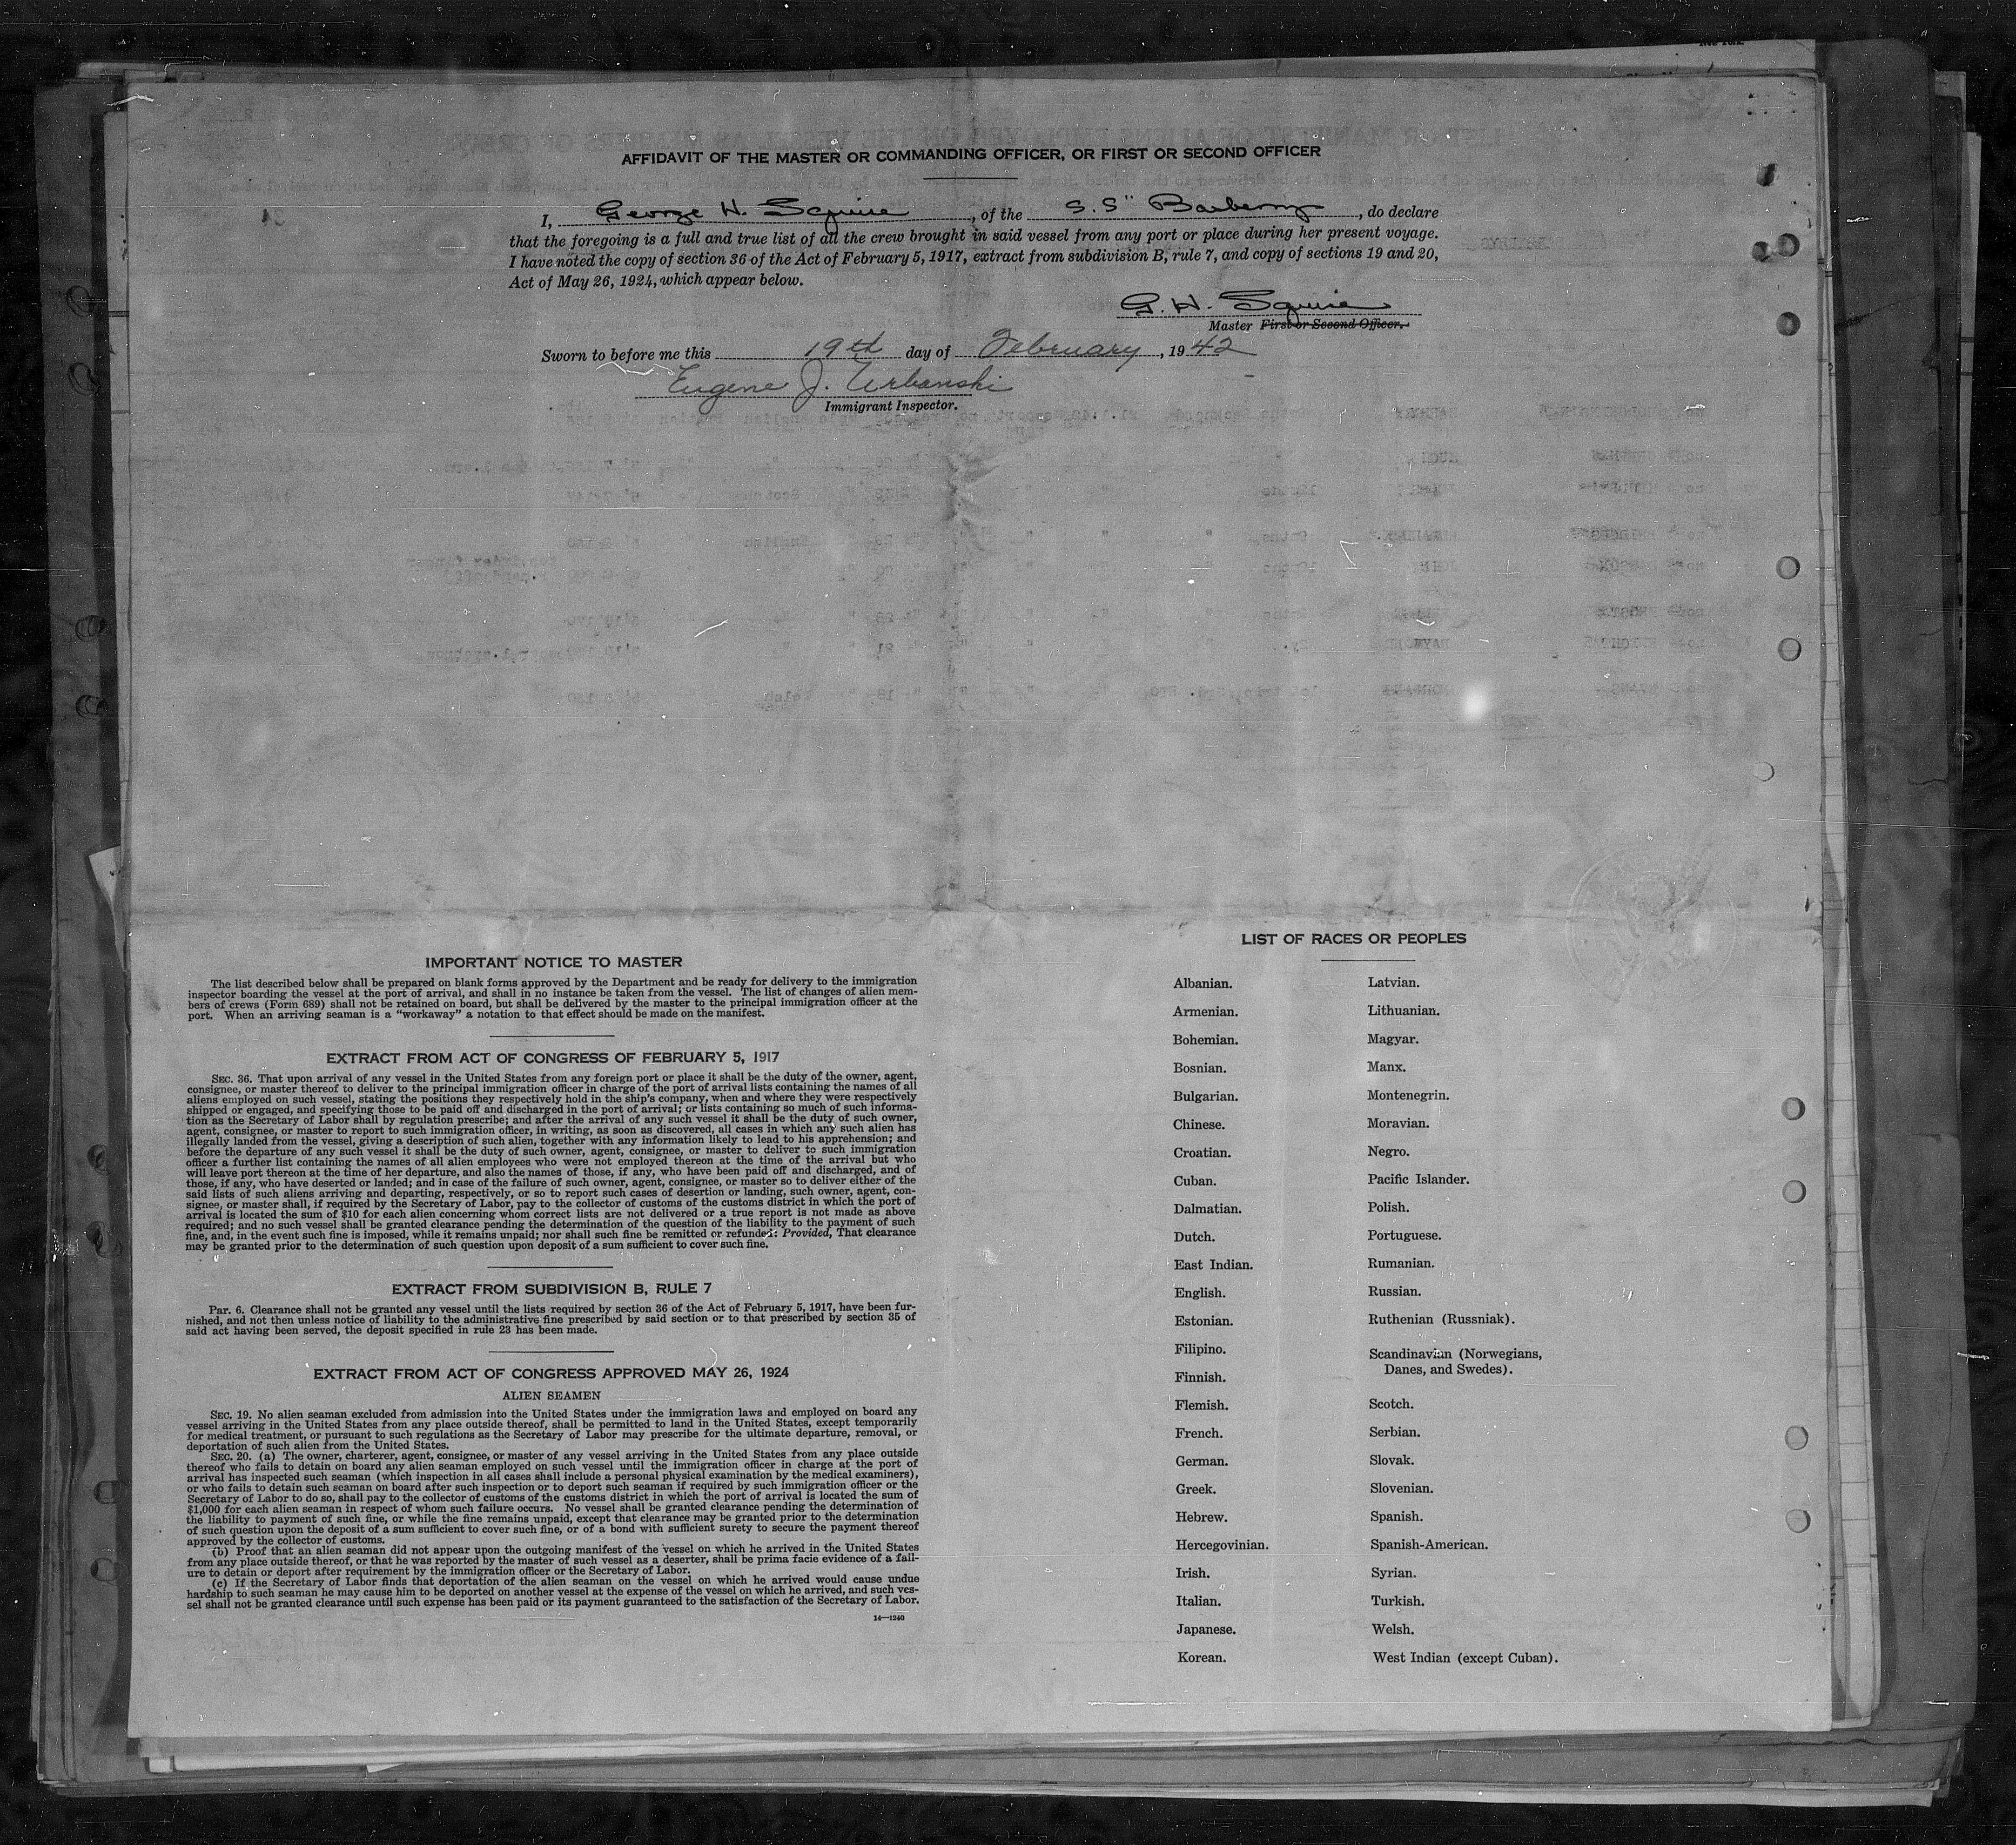 AFFIDAVIT OF THE MASTER OR COMMANDING OFFICER, OR FIRST OR SECOND OFFICER
I, George H. Squire, of the S.S" Barberry, do declare
that the foregoing is a full and true list of all the crew brought in said vessel from any port or place during her present voyage.
I have noted the copy of section 36 of the Act of February 5, 1917, extract from subdivision B, rule 7, and copy of sections 19 and 20,
Act of May 26, 1924, which appear below.
G. H. Squire
Master First or Second Officer.
Sworn to before me this 19th day of February, 1942
Eugene J. Urbanski
Immigrant Inspector.
IMPORTANT NOTICE TO MASTER
The list described below shall be prepared on blank forms approved by the Department and be ready for delivery to the immigration
inspector boarding the vessel at the port of arrival, and shall in no instance be taken from the vessel. The list of changes of alien mem-
bers of crews (Form 689) shall not be retained on board, but shall be delivered by the master to the principal immigration officer at the
port. When an arriving seaman is a "workaway" a notation to that effect should be made on the manifest.
EXTRACT FROM ACT OF CONGRESS OF FEBRUARY 5, 1917
SEC. 36. That upon arrival of any vessel in the United States from any foreign port or place it shall be the duty of the owner, agent,
consignee, or master thereof to deliver to the principal immigration officer in charge of the port of arrival lists containing the names of all
aliens employed on such vessel, stating the positions they respectively hold in the ship's company, when and where they were respectively
shipped or engaged, and specifying those to be paid off and discharged in the port of arrival; or lists containing so much of such informa-
tion as the Secretary of Labor shall by regulation prescribe; and after the arrival of any such vessel it shall be the duty of such owner,
agent, consignee, or master to report to such immigration officer, in writing, as soon as discovered, all cases in which any such alien has
illegally landed from the vessel, giving a description of such alien, together with any information likely to lead to his apprehension; and
before the departure of any such vessel it shall be the duty of such owner, agent, consignee, or master to deliver to such immigration
officer a further list containing the names of all alien employees who were not employed thereon at the time of the arrival but who
will leave port thereon at the time of her departure, and also the names of those, if any, who have been paid off and discharged, and of
those, if any, who have deserted or landed; and in case of the failure of such owner, agent, consignee, or master so to deliver either of the
said lists of such aliens arriving and departing, respectively, or so to report such cases of desertion or landing, such owner, agent, con-
signee, or master shall, if required by the Secretary of Labor, pay to the collector of customs of the customs district in which the port of
arrival is located the sum of $10 for each alien concerning whom correct lists are not delivered or a true report is not made as above
required; and no such vessel shall be granted clearance pending the determination of the question of the liability to the payment of such
fine, and, in the event such fine is imposed, while it remains unpaid; nor shall such fine be remitted or refunded: Provided, That clearance
may be granted prior to the determination of such question upon deposit of a sum sufficient to cover such fine.
EXTRACT FROM SUBDIVISION B, RULE 7
Par. 6. Clearance shall not be granted any vessel until the lists required by section 36 of the Act of February 5, 1917, have been fur-
nished, and not then unless notice of liability to the administrative fine prescribed by said section or to that prescribed by section 35 of
said act having been served, the deposit specified in rule 23 has been made.
EXTRACT FROM ACT OF CONGRESS APPROVED MAY 26, 1924
ALIEN SEAMEN
SEC. 19. No alien seaman excluded from admission into the United States under the immigration laws and employed on board any
vessel arriving in the United States from any place outside thereof, shall be permitted to land in the United States, except temporarily
for medical treatment, or pursuant to such regulations as the Secretary of Labor may prescribe for the ultimate departure, removal, or
deportation of such alien from the United States.
SEC. 20. (a) The owner, charterer, agent, consignee, or master of any vessel arriving in the United States from any place outside
thereof who fails to detain on board any alien seaman employed on such vessel until the immigration officer in charge at the port of
arrival has inspected such seaman (which inspection in all cases shall include a personal physical examination by the medical examiners),
or who fails to detain such seaman on board after such inspection or to deport such seaman if required by such immigration officer or the
Secretary of Labor to do so, shall pay to the collector of customs of the customs district in which the port of arrival is located the sum of
$1,000 for each alien seaman in respect of whom such failure occurs. No vessel shall be granted clearance pending the determination of
the liability to payment of such fine, or while the fine remains unpaid, except that clearance may be granted prior to the determination
of such question upon the deposit of a sum sufficient to cover such fine, or of a bond with sufficient surety to secure the payment thereof
approved by the collector of customs.
(b) Proof that an alien seaman did not appear upon the outgoing manifest of the vessel on which he arrived in the United States
from any place outside thereof, or that he was reported by the master of such vessel as a deserter, shall be prima facie evidence of a fail-
ure to detain or deport after requirement by the immigration officer or the Secretary of Labor.
(c) If the Secretary of Labor finds that deportation of the alien seaman on the vessel on which he arrived would cause undue
hardship to such seaman he may cause him to be deported on another vessel at the expense of the vessel on which he arrived, and such ves-
sel shall not be granted clearance until such expense has been paid or its payment guaranteed to the satisfaction of the Secretary of Labor.
14—1240
LIST OF RACES OR PEOPLES
Albanian.
Armenian.
Bohemian.
Bosnian.
Bulgarian.
Chinese.
Croatian.
Cuban.
Dalmatian.
Dutch.
East Indian.
English.
Estonian.
Filipino.
Finnish.
Flemish.
French.
German.
Greek.
Hebrew.
Hercegovinian.
Irish.
Italian.
Japanese.
Korean.
Latvian.
Lithuanian.
Magyar.
Manx.
Montenegrin.
Moravian.
Negro.
Pacific Islander.
Polish.
Portuguese.
Rumanian.
Russian.
Ruthenian (Russniak).
Scandinavian (Norwegians,
Danes, and Swedes).
Scotch.
Serbian.
Slovak.
Slovenian.
Spanish.
Spanish-American.
Syrian.
Turkish.
Welsh.
West Indian (except Cuban).